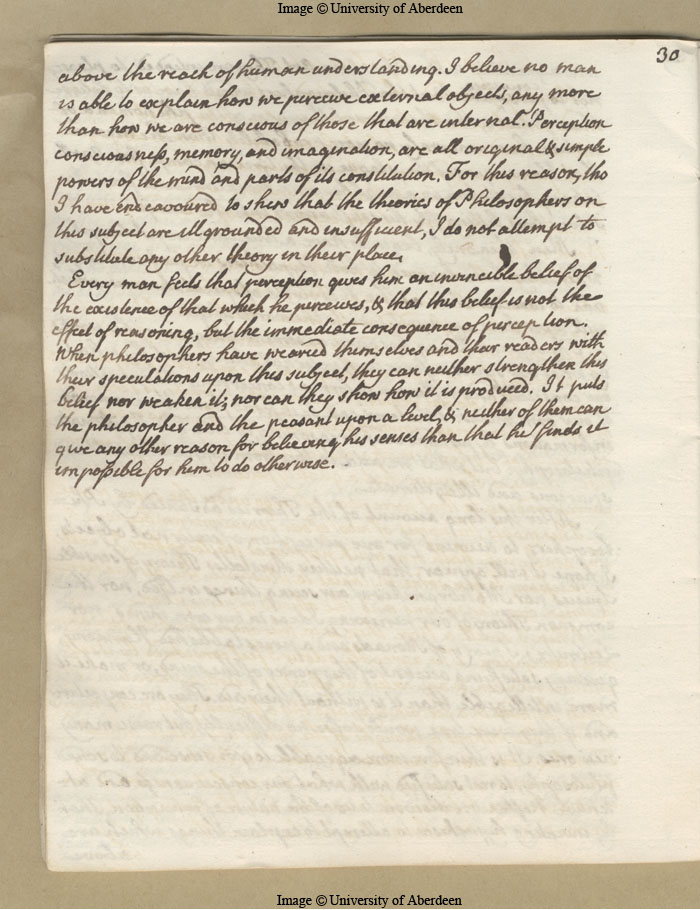 Image © University of Aberdeen
30
above the reach of human understanding. I believe no man
is able to explain how we perceive external objects, any more
than how we are conscious of those that are internal. Perception
consciousness, memory, and imagination, are all original & simple
powers of the mind and parts of its constitution. For this reason, tho
I have endeavoured to shew that the theories of Philosophers on
this subject are ill grounded and insufficient, I do not attempt to
substitute any other theory in their place.
Every man feels that perception gives him an invincible belief of
the existence of that which he perceives, & that this belief is not the
effect of reasoning, but the immediate consequence of perception.
When philosophers have wearied themselves and their readers with
their speculations upon this subject, they can neither strengthen this
belief nor weaken it; nor can they show how it is produced. It puts
the philosopher and the peasant upon a level, & neither of them can
give any other reason for believing his senses than that he finds it
impossible for him to do otherwise.
Image © University of Aberdeen